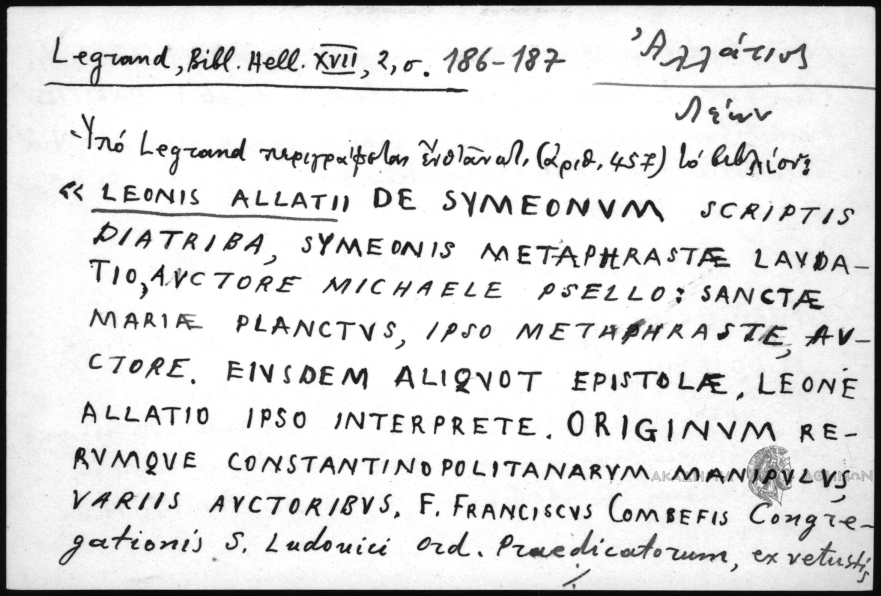 Legrand, Bibl. Hell. XVII, 2, σ. 186-187
Ἀλλάτιος
Λέων
Ὑπό Legrand περιγράφεται ἐνταῦθα, (ἀριθ. 457) τό βιβλίον:
« LEONIS ALLATII DE SYMEONVM SCRIPTIS
DIATRIBA, SYMEONIS METAPHRASTÆ LAVDA-
TIO, AVCTORE MICHAELE PSELLO: SANCTÆ
MARIÆ PLANCTVS, IPSO METAPHRASTE, AV-
CTORE. EIVSDEM ALIQVOT EPISTOLÆ, LEONE
ALLATIO IPSO INTERPRETE. ORIGINVM RE-
RVMQVE CONSTANTINOPOLITANARVM MANIPVLVS,
VARIIS AVCTORIBVS. F. FRANCISCVS COMBEFIS Congre-
gationis S. Ludouici Ord. Praedicatorum, ex vetustis
./.
ΑΚΑΔΗΜΙΑ ΑΘΗΝΩΝ